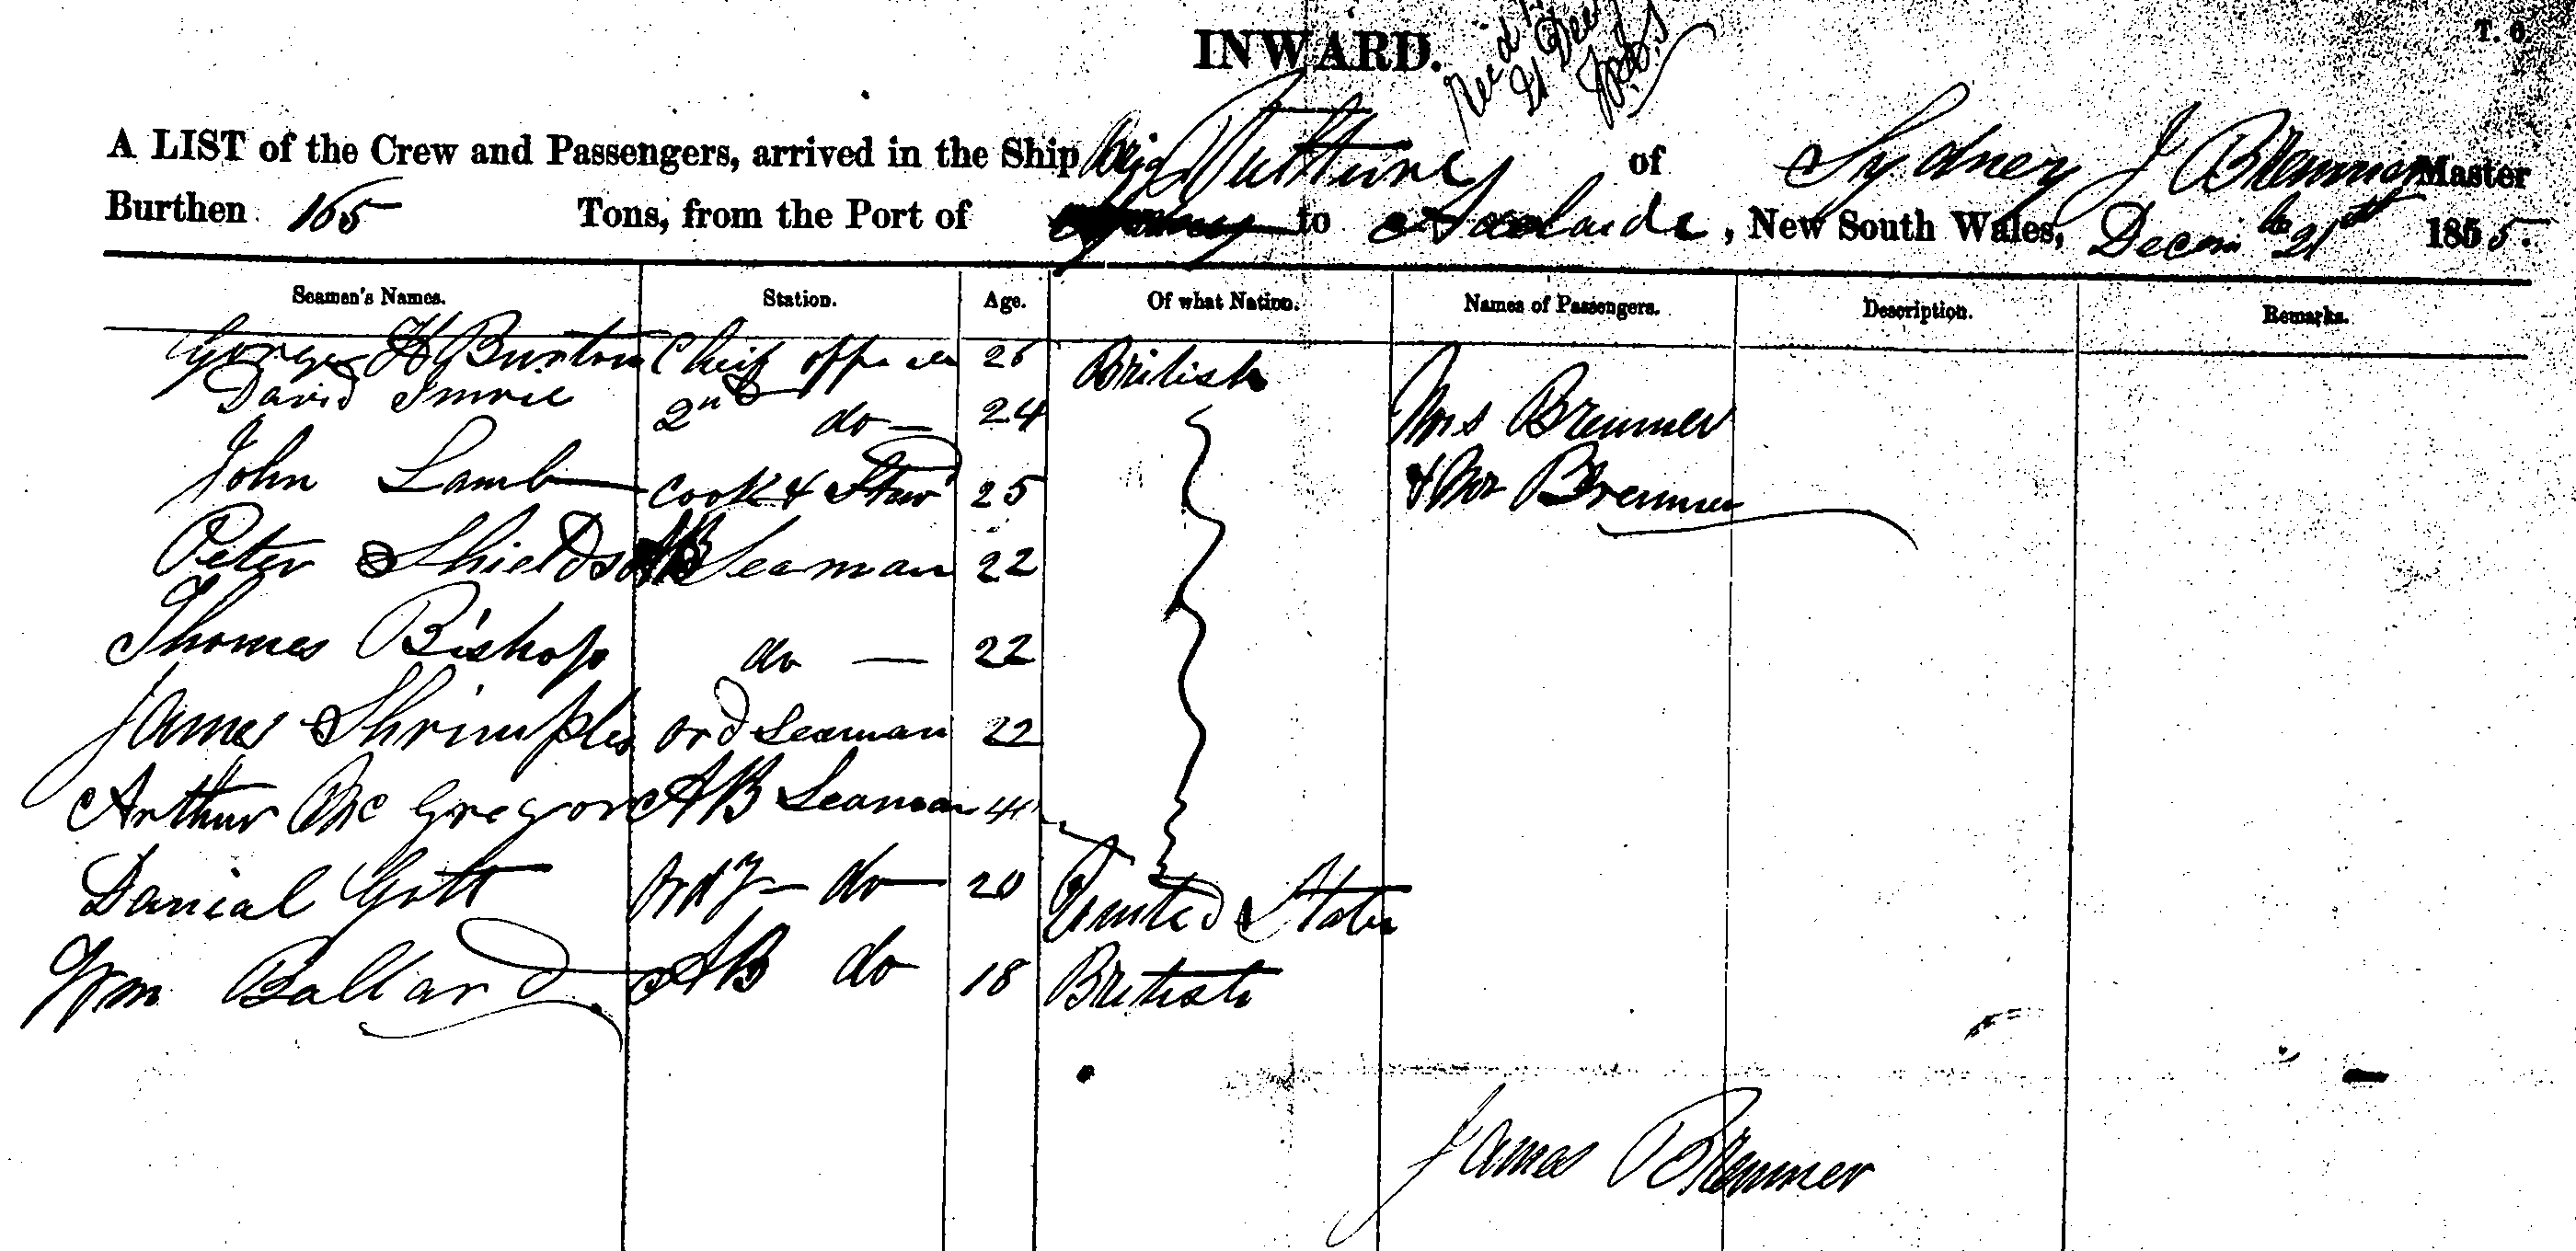 INWARD.
T. 6.
Rec'd
21 Dec
A LIST of the Crew and Passengers, arrived in the Ship brig of Sydney J Bremner Master
Burthen 165 Tons, from the Port of to Adelaide, New South Wales, Decem be 21st 1855.
Seamen's Names. Station. Age. Of what Nation. Names of Passengers. Description. Remarks.
George H Burton Chief officer 26 British
David Imrie 2nd do — 24 Mrs Bremner
John Lamb cook & Stew 25 & Mr Bremner
Peter Shields AB Seaman 22
Thomas Bishop do — 22
James Shrimpler ord Seaman 22
Arthur Mc Gregor AB Seaman 41
Danial Gott Ordy — do — 20 United States
Wm Ballard AB do 18 British
James Bremner